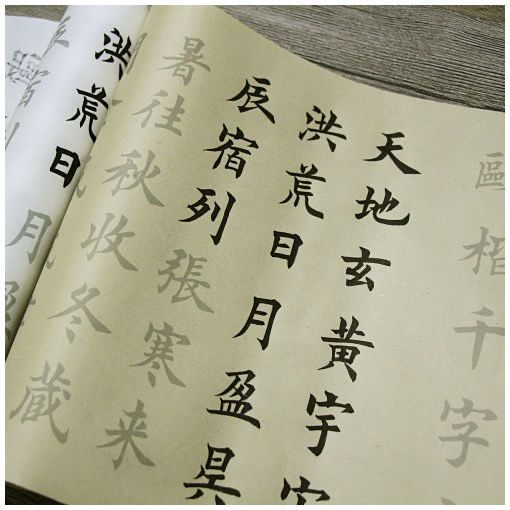 歐楷千字
天地玄黄宇
洪荒日月盈昃
辰宿列張寒来
暑往秋收冬藏
洪荒日月
宿列